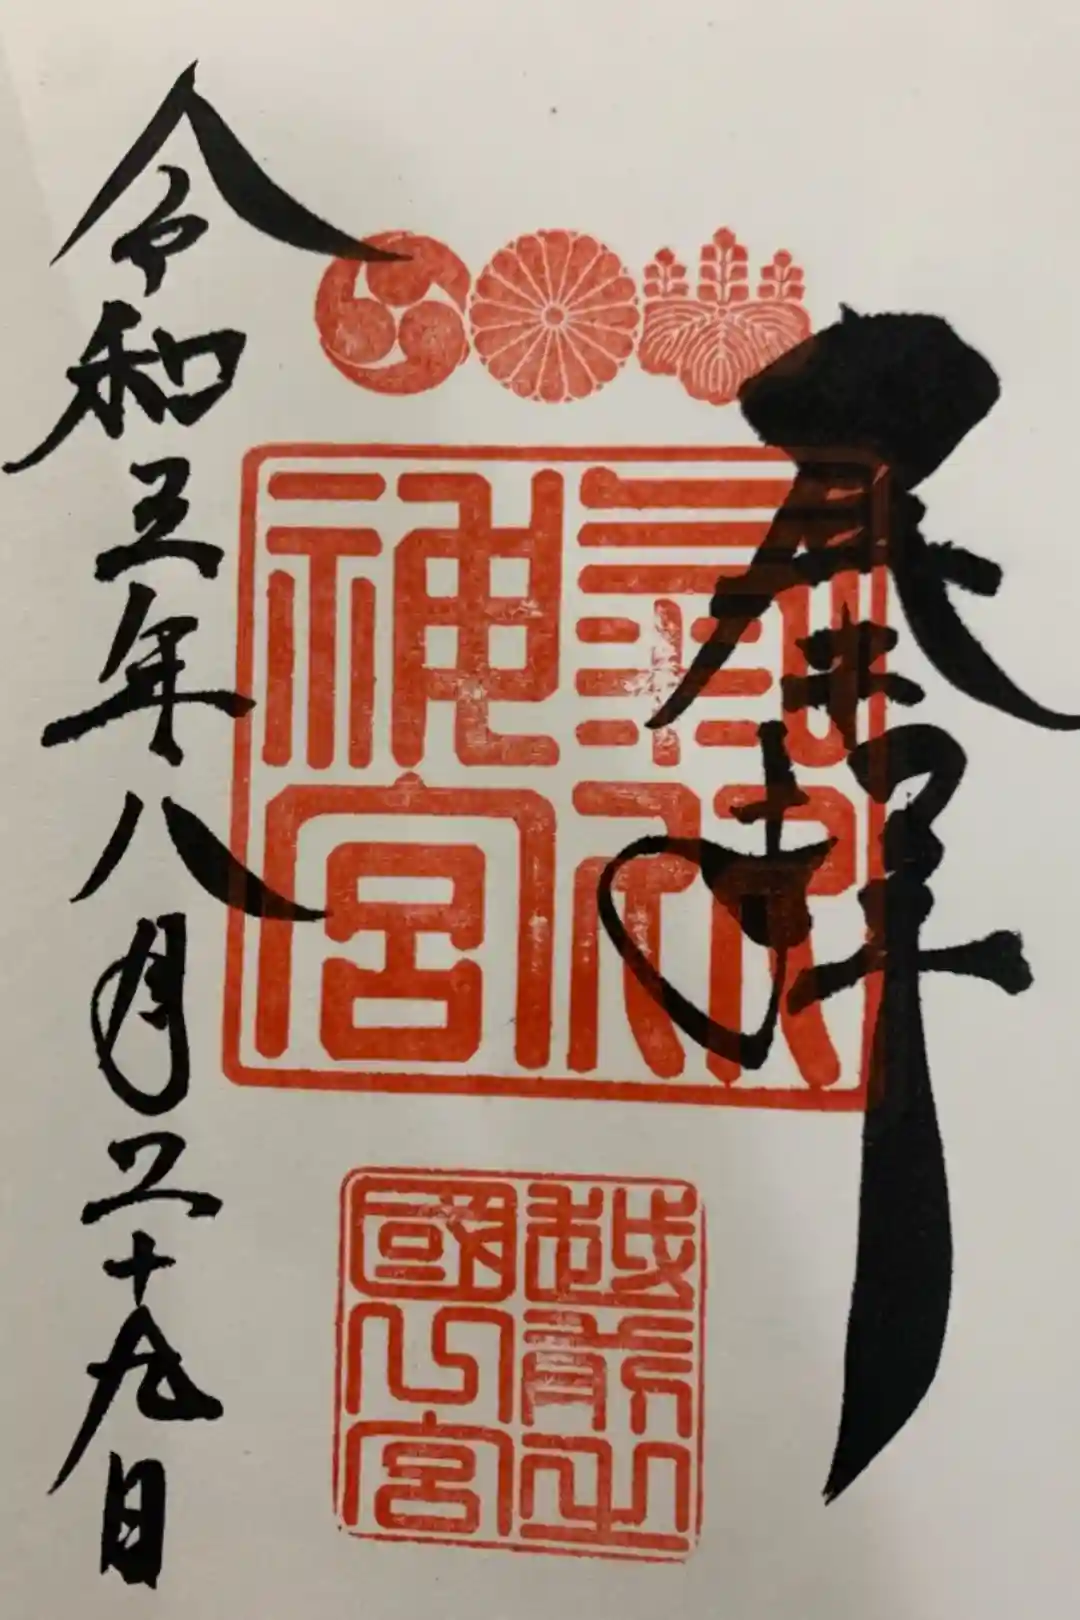 奉拝
氣比神宮
越前之國一宮
令和五年八月二十九日